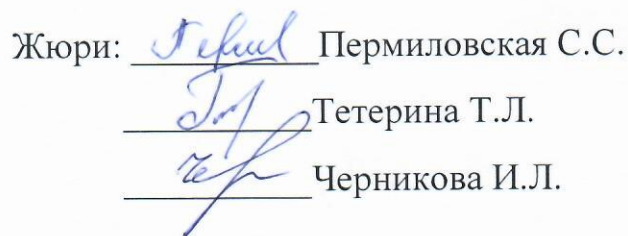 Жюри: Пермиловская С.С.
Тетерина Т.Л.
Черникова И.Л.